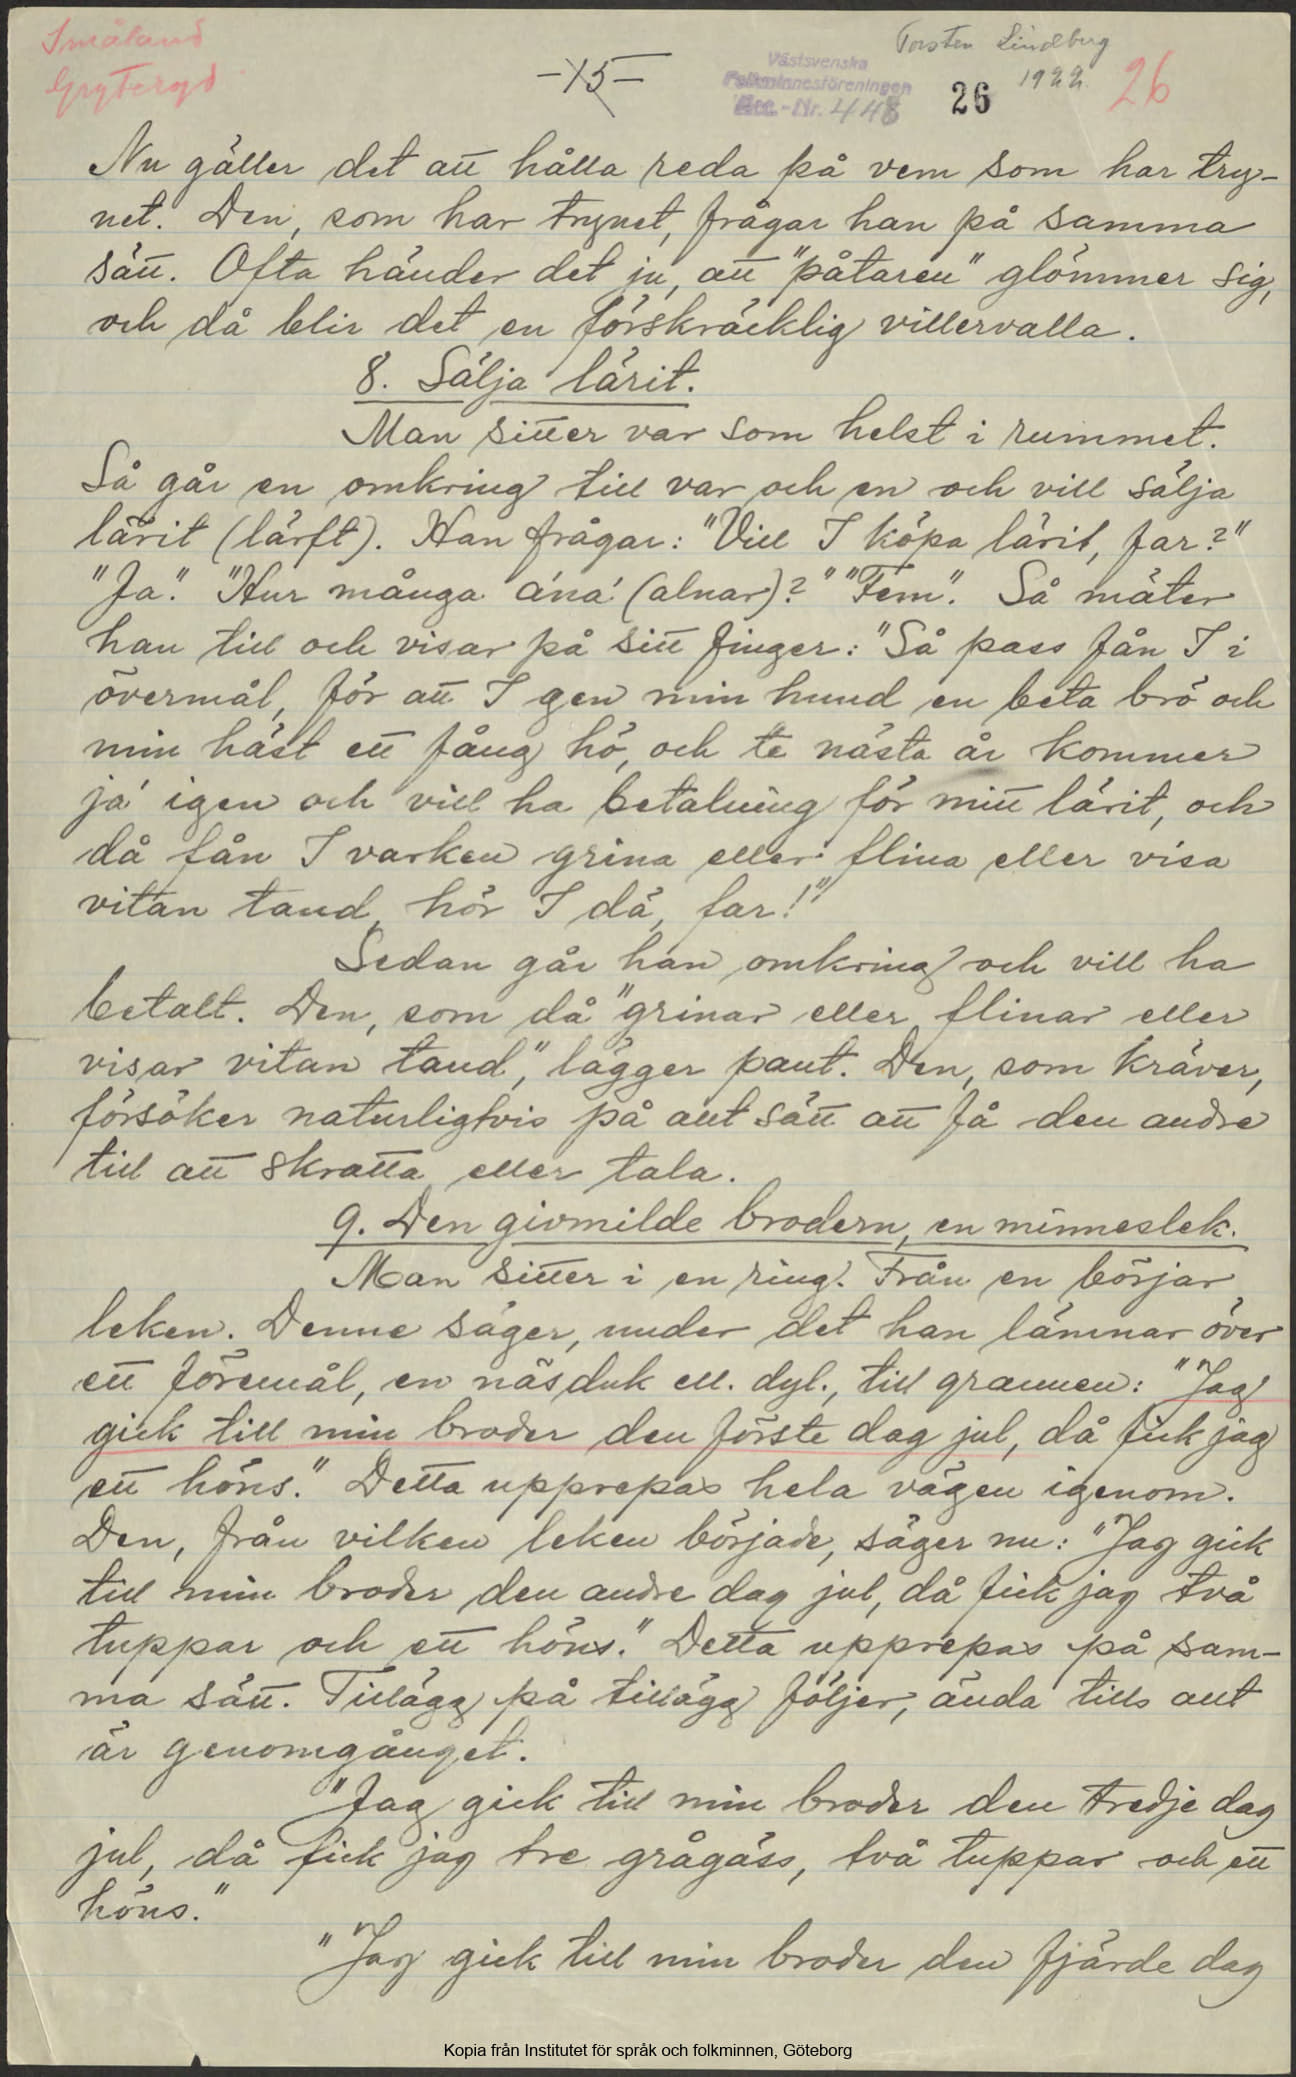 Småland
Gryteryd
-15-
Västsvenska
Folkminnesföreningen
Acc.-Nr. 448
Torsten Lindberg
1922.
26
26
Nu gäller det att hålla reda på vem som har try-
net. Den, som har trynet, frågar han på samma
sätt. Ofta händer det ju, att "påtaren" glömmer sig,
och då blir det en förskräcklig villervalla.
8. Sälja lärit.
Man sitter var som helst i rummet.
Så går en omkring till var och en och vill sälja
lärit (lärft). Han frågar: "Vill I köpa lärit, far?"
"Ja". "Hur många a'na' (alnar)?" "Fem". Så mäter
han till och visar på sitt finger: "Så pass fån I i
övermål, för att I gen min hund en beta brö och
min häst ett fång hö, och te nästa år kommer
ja' igen och vill ha betalning för mitt lärit, och
då fån I varken grina eller flina eller visa
vitan tand, hör I då, far!"
Sedan går han omkring och vill ha
betalt. Den, som då "grinar eller flinar eller
visar vitan tand", lägger pant. Den, som kräver,
försöker naturligtvis på allt sätt att få den andre
till att skratta eller tala.
9. Den givmilde brodern, en minneslek.
Man sitter i en ring. Från en börjar
leken. Denne säger, under det han lämnar över
ett föremål, en näsduk ell. dyl., till grannen: "Jag
gick till min broder den förste dag jul, då fick jag
ett höns." Detta upprepas hela vägen igenom.
Den, från vilken leken började, säger nu: "Jag gick
till min broder den andre dag jul, då fick jag två
tuppar och ett höns." Detta upprepas på sam-
ma sätt. Tillägg på tillägg följer, ända tills allt
är genomgånget.
"Jag gick till min broder den tredje dag
jul, då fick jag tre grågäss, två tuppar och ett
höns."
"Jag gick till min broder den fjärde dag
Kopia från Institutet för språk och folkminnen, Göteborg